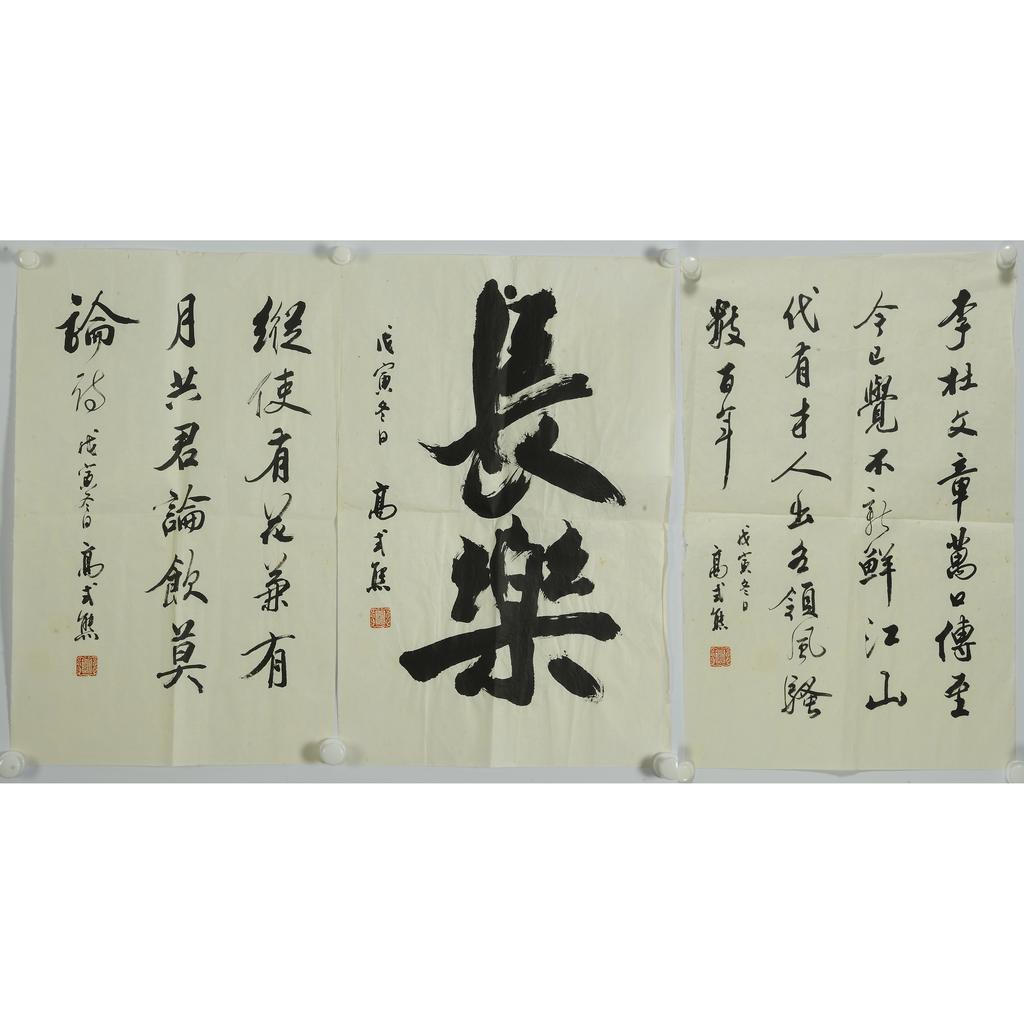 李杜文章萬口傳至
今已覺不新鮮江山
代有才人出各領風騷
數百年
戊寅冬日
高式熊
長樂
戊寅冬日 高式熊
縱使有花兼有
月共君論飲莫
論詩 戊寅冬日 高式熊